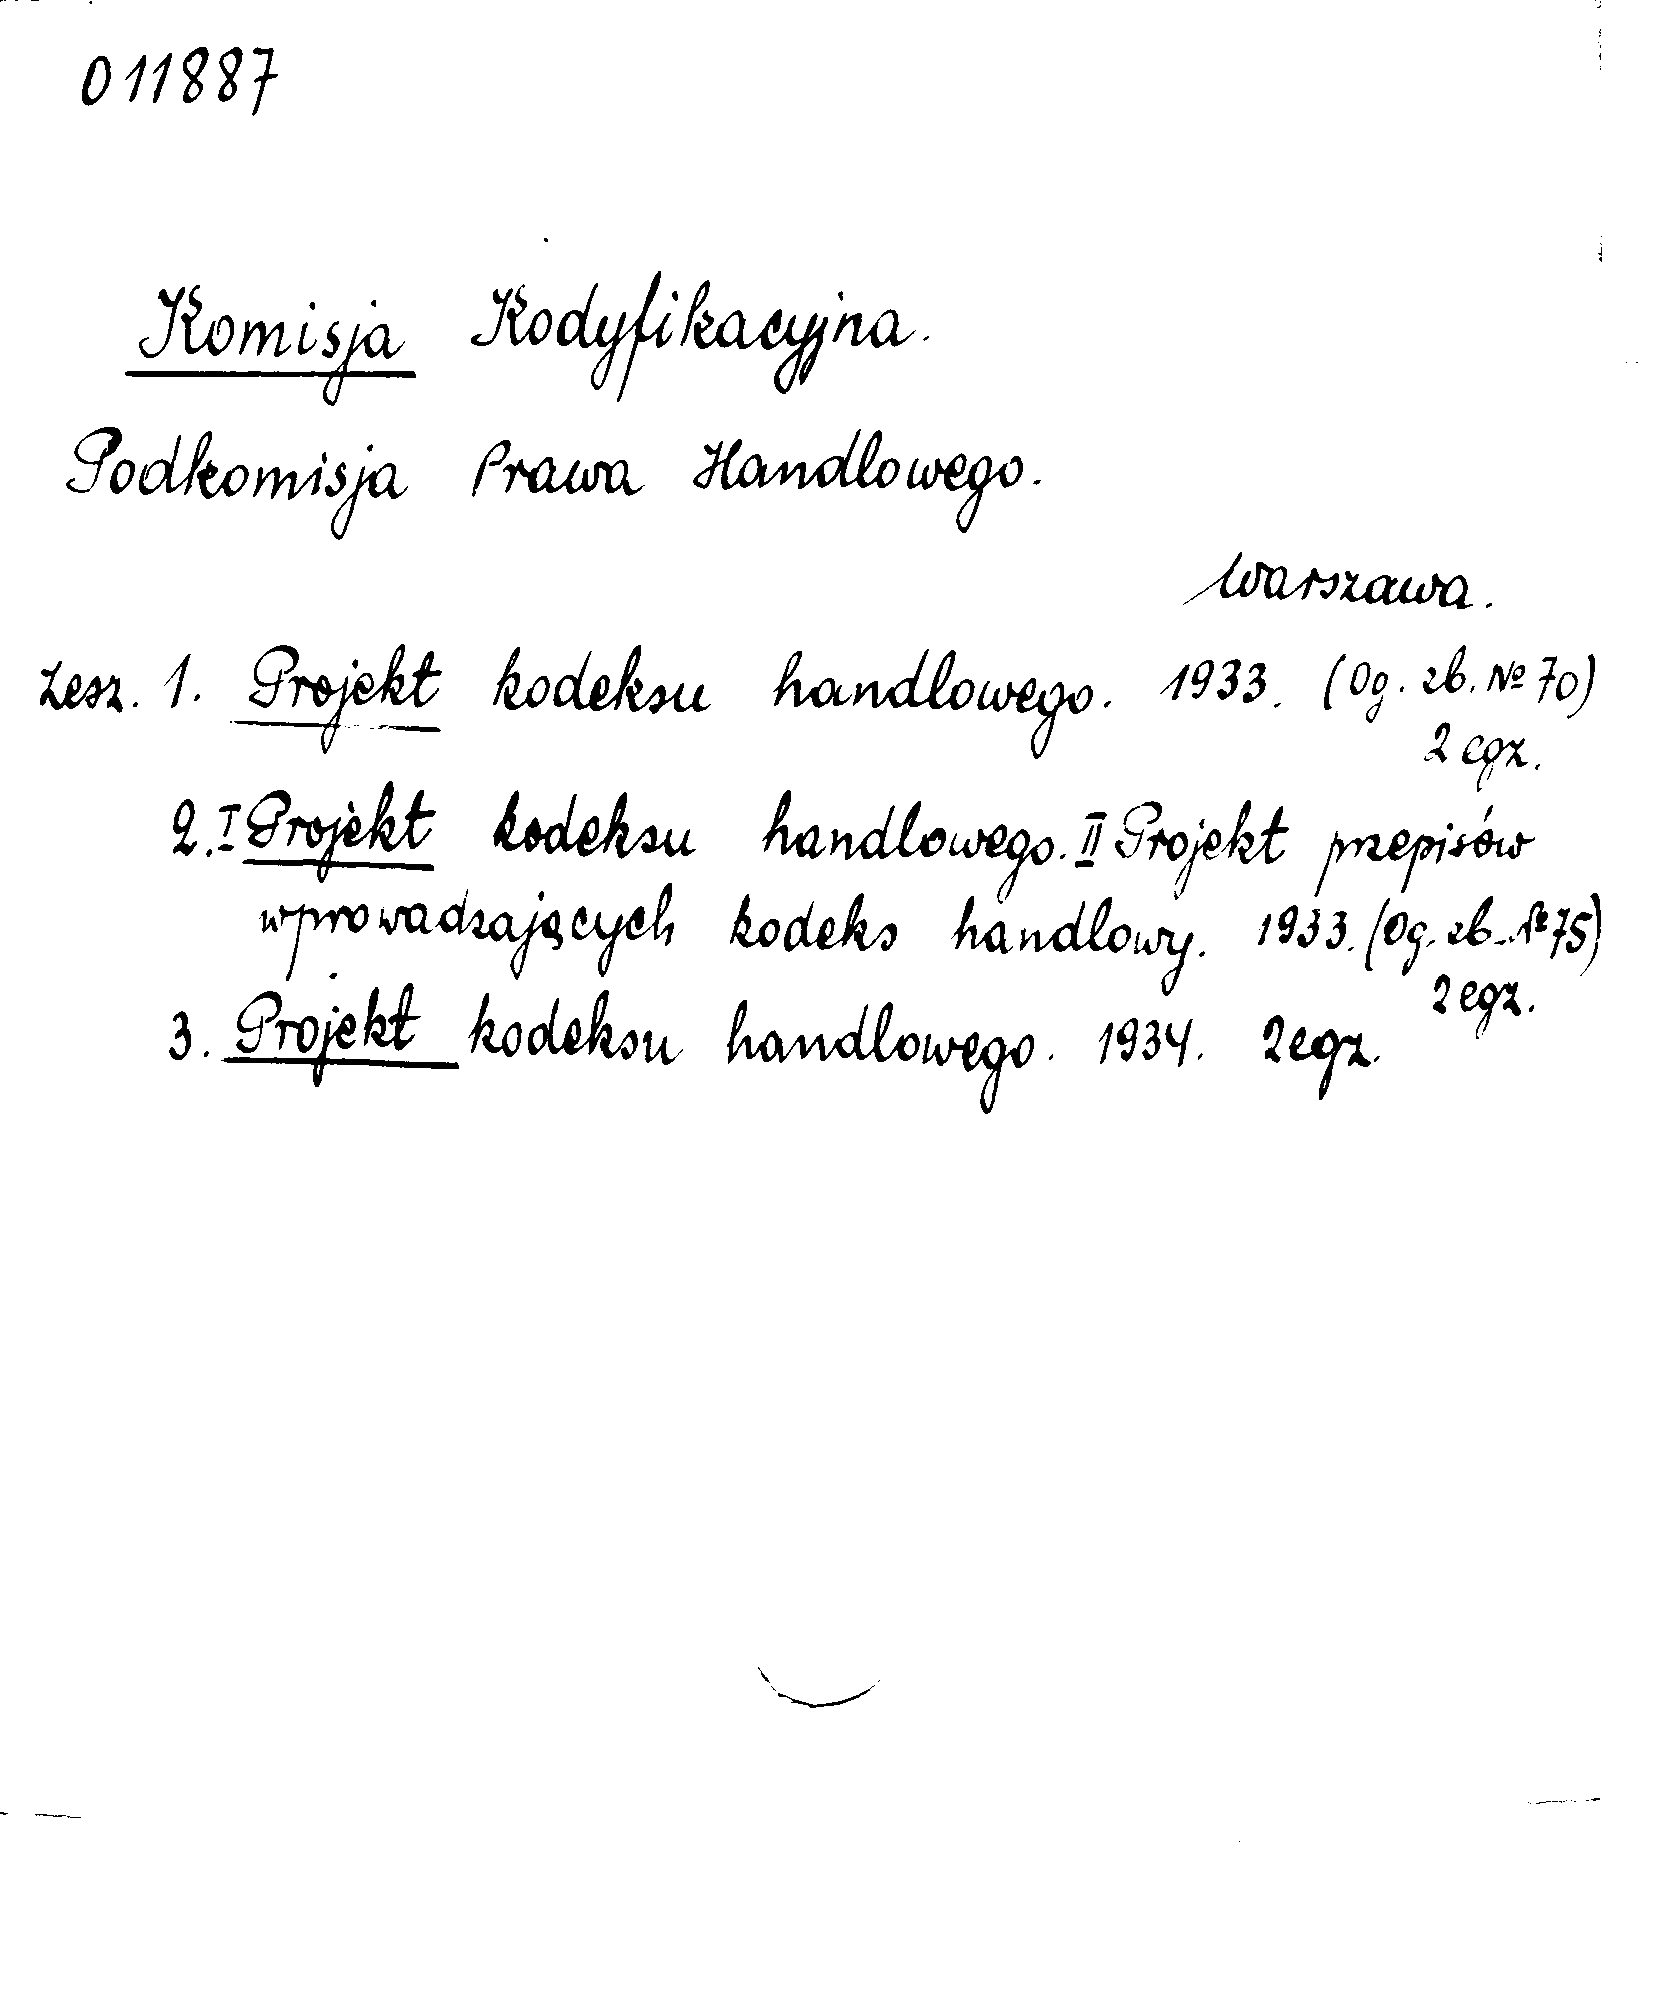 011887
Komisja Kodyfikacyjna.
Podkomisja Prawa Handlowego.
Warszawa.
Zesz. 1. Projekt kodeksu handlowego. 1933. (Og. zb. № 70)
2 egz.
2. I Projekt kodeksu handlowego. II Projekt przepisów
wprowadzających kodeks handlowy. 1933. (Og. zb. № 75)
2 egz.
3. Projekt kodeksu handlowego. 1934. 2 egz.